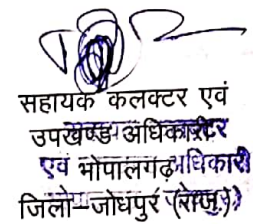 सहायक कलक्टर एवं
उपखण्ड अधिकारी
एवं भोपालगढ़ अधिकारी
जिला–जोधपुर (राज.)